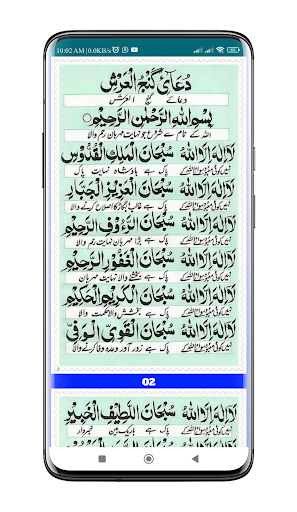 10:02 AM | 0.0KB/s
دُعَائے گَنْجُ الْعَرْش
دعائے گنج العرش
بِسْمِ اللهِ الرَّحْمٰنِ الرَّحِيْمِ
اللہ کے نام سے شروع جو نہایت مہربان رحم والا
لَا إِلٰهَ إِلَّا اللهُ سُبْحَانَ الْمَلِكِ الْقُدُّوْسِ
نہیں کوئی معبود سوائے اللہ کے پاک ہے بادشاہ نہایت پاک
لَا إِلٰهَ إِلَّا اللهُ سُبْحَانَ الْعَزِيْزِ الْجَبَّارِ
نہیں کوئی معبود سوائے اللہ کے پاک ہے غالب بگاڑ کا اصلاح کرنے والا
لَا إِلٰهَ إِلَّا اللهُ سُبْحَانَ الرَّءُوْفِ الرَّحِيْمِ
نہیں کوئی معبود سوائے اللہ کے پاک ہے بڑا مہربان نہایت رحم والا
لَا إِلٰهَ إِلَّا اللهُ سُبْحَانَ الْغَفُوْرِ الرَّحِيْمِ
نہیں کوئی معبود سوائے اللہ کے پاک ہے بخشنے والا نہایت مہربان
لَا إِلٰهَ إِلَّا اللهُ سُبْحَانَ الْكَرِيْمِ الْحَكِيْمِ
نہیں کوئی معبود سوائے اللہ کے پاک ہے بخشش والا حکمت والا
لَا إِلٰهَ إِلَّا اللهُ سُبْحَانَ الْقَوِيِّ الْوَفِيِّ
نہیں کوئی معبود سوائے اللہ کے پاک ہے زور آور وعدہ وفا کرنے والا
02
لَا إِلٰهَ إِلَّا اللهُ سُبْحَانَ اللَّطِيْفِ الْخَبِيْرِ
نہیں کوئی معبود سوائے اللہ کے پاک ہے باریک بین خبردار